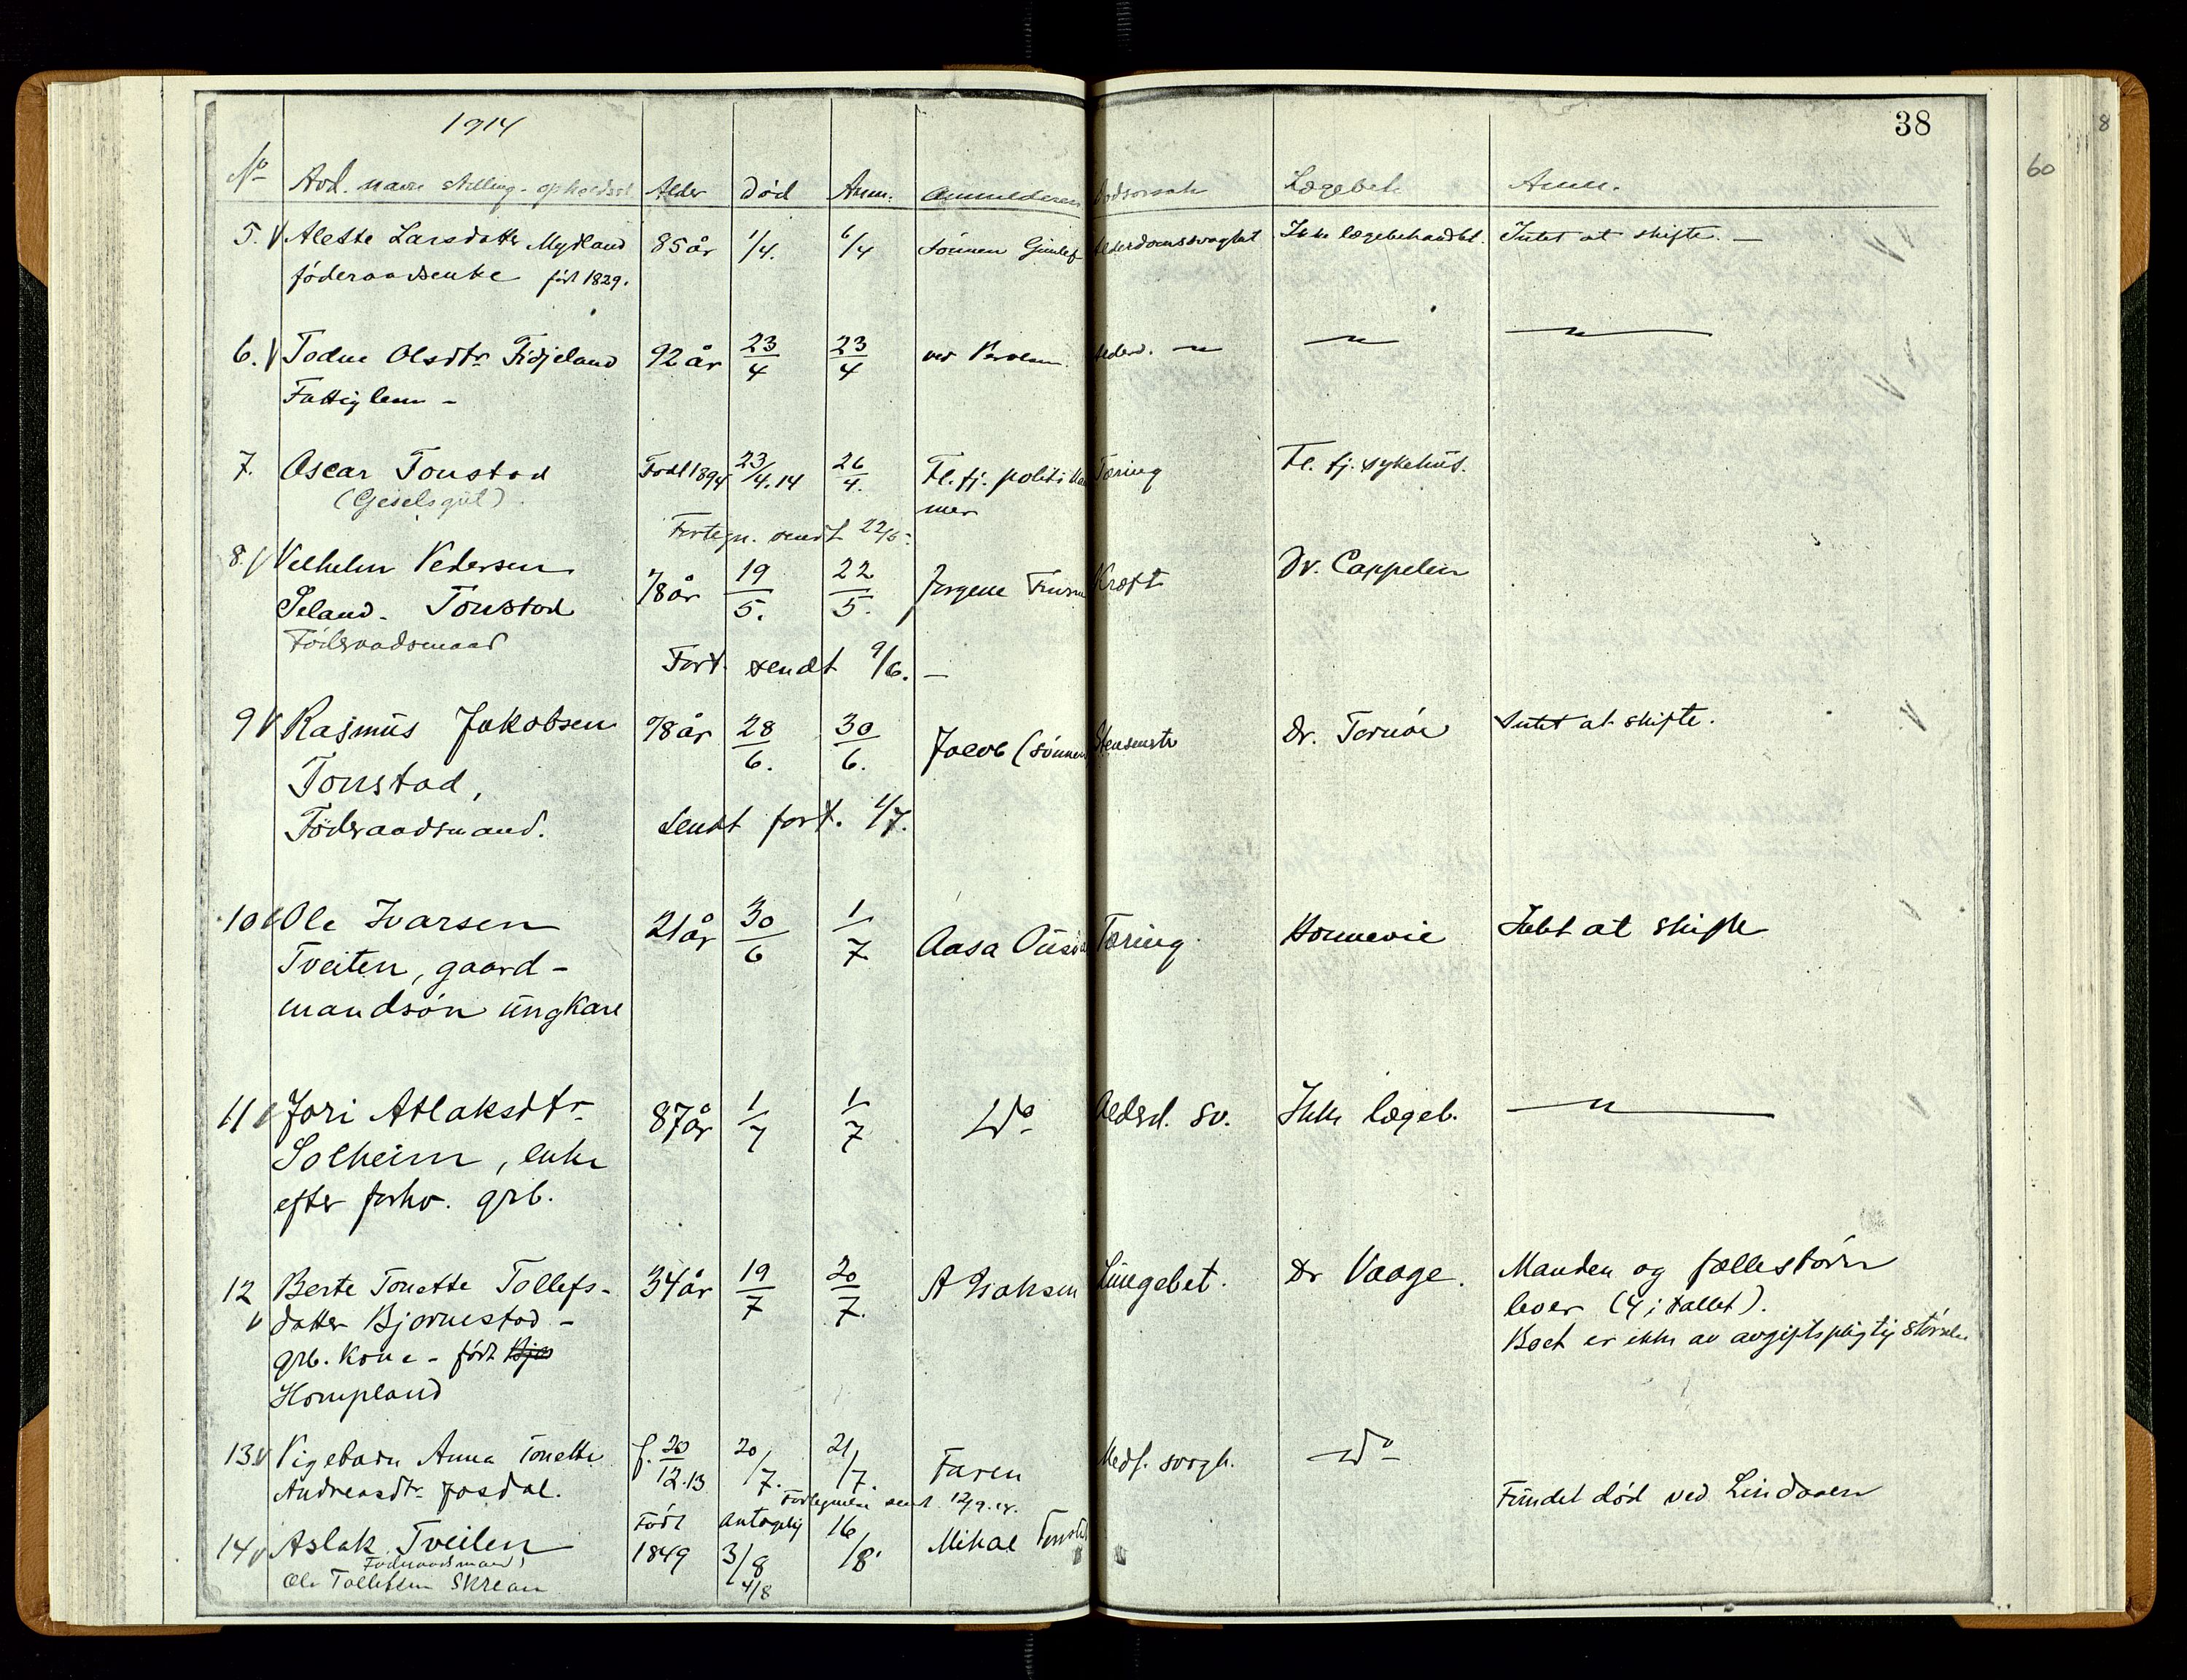 1914
38
60
8
No Avd. navn stilling - opholdsst. Alder Død Anm. Anmelderen Dødsorsak Lægebeh. Anm.
5. Alette Larsdatter Mydland 85 år 1/4. 6/4 Sønnen Gunlef Alderdomssvaghet Ikke lægebehandlet. Intet at skifte. —
føderaadsenke født 1829.
6. Todne Olsdtr. Fidjeland 92 år 23/4 23/4 Alderd. — " — — " — — " —
Fattiglem -
7. Oscar Tonstad Født 1894 23/4.14 26/4. Fl. fj. politikam Tæring Fl. fj. sykehus.
(Geiselsgut) mer
Fortegn. sendt 22/5.
8. Vilhelm Pedersen 78 år 19/5. 22/5. Jørgene Kræft Dr. Cappelen
Seland - Tonstad
Føderaadsmand
Fort. sendt 9/6. —
9 Rasmus Jakobsen 78 år 28/6. 30/6. Jacob (sønnen Dr. Tornøe Intet at skifte.
Tonstad,
Føderaadsmand. Sendt fort. 1/7.
10 Ole Ivarsen 21 år 30/6 1/7 Aasa Ousdal Tæring Homnevie Intet at skifte
Tveiten, gaard-
mandsøn ungkare
11 Jori Atlaksdtr 87 år 1/7 1/7 Do Alderd. sv. Ikke lægeb. — " —
Solheim, enke
efter forhv. grb.
12 Berte Tonette Tollefs- 34 år 19/7 20/7. A Isaksen Lungebet. Dr Vaage. Manden og fællesbørn
datter Bjørnestad - lever (4 i tallet).
grb. kone - født Bjør Boet er ikke av avgiftspligtig størrelse
Hompland
13 Pigebarn Anna Tonette f. 20/12.13 20/7. 21/7. Faren Medf. svagh. Do
Andreasdtr. Josdal.
Fortegnelse sendt 12/9.14.
Fundet død ved Lindaaen
14 Aslak Tveiten Født 1849 antagelig 3/8 16/8. Mikal Tonstad
Føderaadsmand
Ole Tollefsen Skreaa 4/8